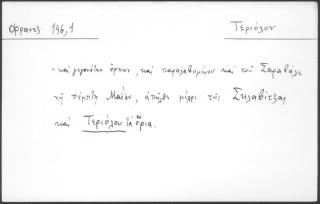 Φραντζ. 146,1
Τεριόλον
"καὶ γεγονότων ὅρκων, καὶ παραλαβομένου καὶ τοῦ Σαραβάλε
τῇ πέμπτῃ Μαΐου, ἀπῆλθε μέχρι τῆς Σκλαβίτζας
καὶ Τεριόλου τὰ ὅρια.